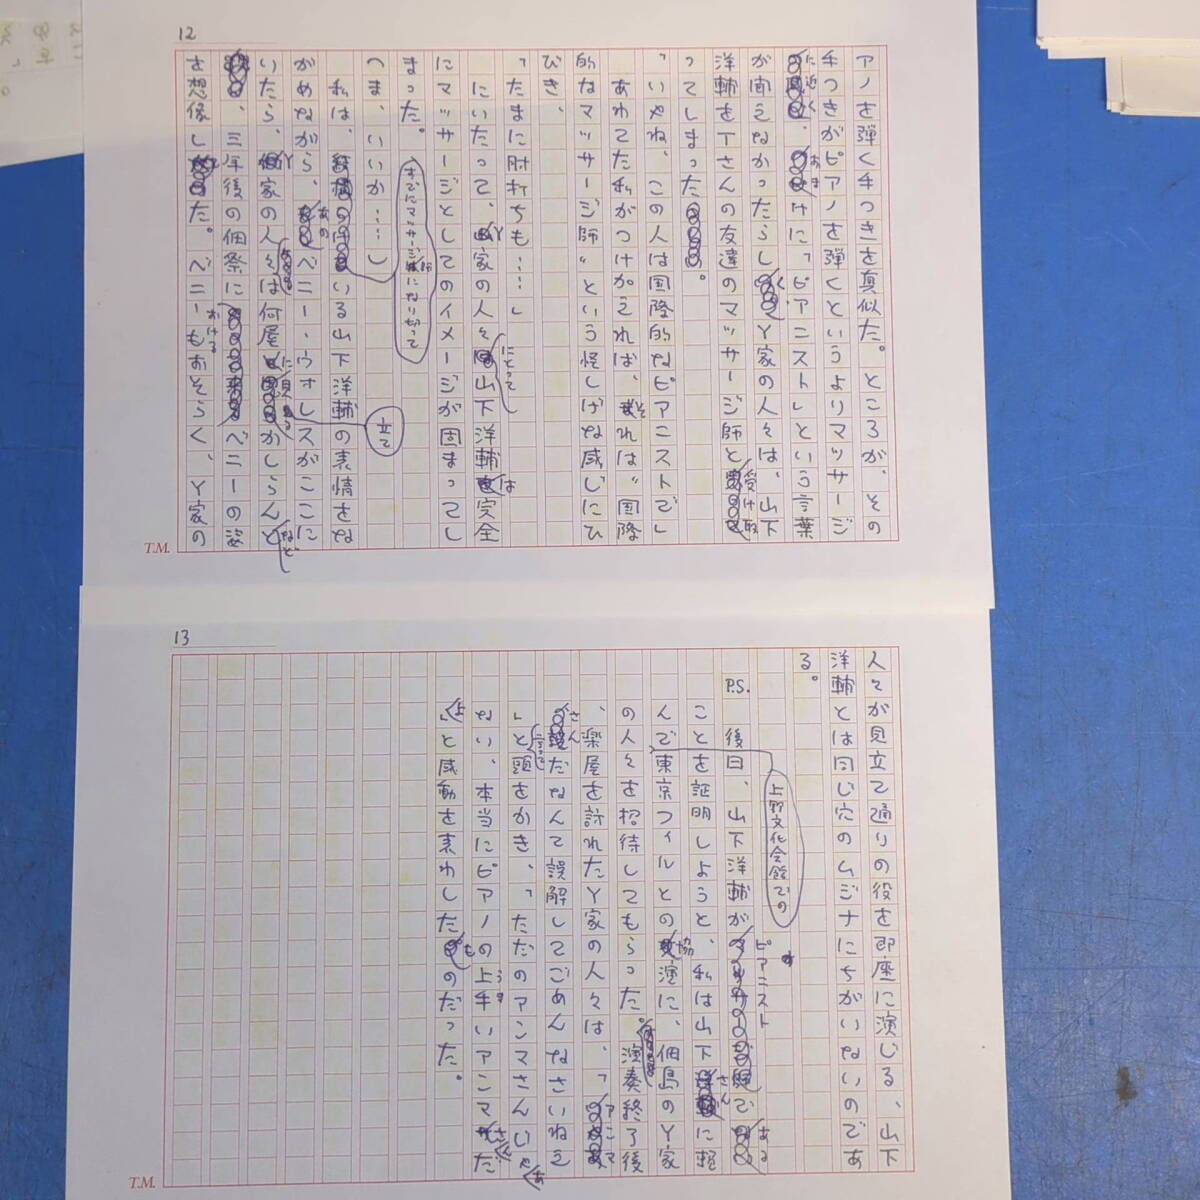 12
アノを弾く手つきを真似た。ところが、その
手つきがピアノを弾くというよりマッサージ
に近く、おまけに「ピアニスト」という言葉
が聞えなかったらしく、Y家の人々は、山下
洋輔をTさんの友達のマッサージ師と受け取
ってしまった。
「いやね、この人は国際的なピアニストでし
あわてた私がつけ加えれば、それは〝国際
的なマッサージ師〟という怪しげな感じにひ
びき、
「たまに肘打ちも……」
にいたって、Y家の人々にとって山下洋輔は完全
にマッサージとしてのイメージが固まってし
まった。
「ま、いいか……」
すでにマッサージ師になり切って
私は、いる山下洋輔の表情をな
がめながら、あのベニー・ウォレスがここに
いたら、Y家の人々は何屋に見立てかしらんなどと
、三年後の佃祭におけるベニーの姿
を想像した。ベニーもおそらく、Y家の
T.M.
13
人々が見立て通りの役を即座に演じる、山下
洋輔とは同じ穴のムジナにちがいないのであ
る。
P.S. 後日、山下洋輔がピアニストである
ことを証明しようと、私は山下さんに頼
んで上野文化会館での東京フィルとの協演に、佃島のY家
の人々を招待してもらった。演奏終了後
、楽屋を訪れたY家の人々は、「アンマ
さんだなんて誤解してごめんなさいねえ
」と頭をかき、「ただのアンマさんじゃあ
ない、本当にピアノの上手いアンマさんだ
よ」と感動を表わしたものだった。
T.M.